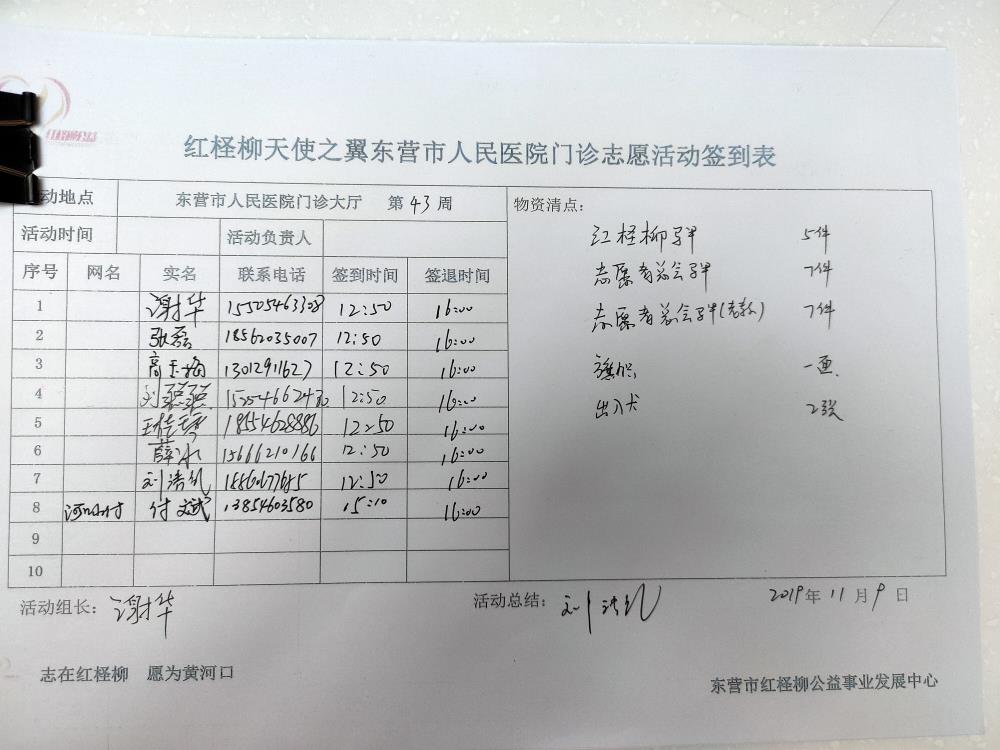 红柽柳天使之翼东营市人民医院门诊志愿活动签到表
动地点 东营市人民医院门诊大厅 第 43 周 物资清点:
活动时间 活动负责人
红柽柳 5件
序号 网名 实名 联系电话 签到时间 签退时间
志愿者总会 7件
1 谢华 15505463308 12:50 16:00
志愿者总会 7件
2 张磊 18562035007 12:50 16:00
3 高玉梅 13012911627 12:50 16:00
旗帜 一面
4 刘 12:50 16:00
2张
5 18554628886 12:50 16:00
6 薛冰 15666210166 12:50 16:00
7 刘浩 12:50 16:00
8 付文武 13854603580 15:10 16:00
9
10
活动组长: 谢华 活动总结: 刘 2019年 11月 9日
志在红柽柳 愿为黄河口
东营市红柽柳公益事业发展中心